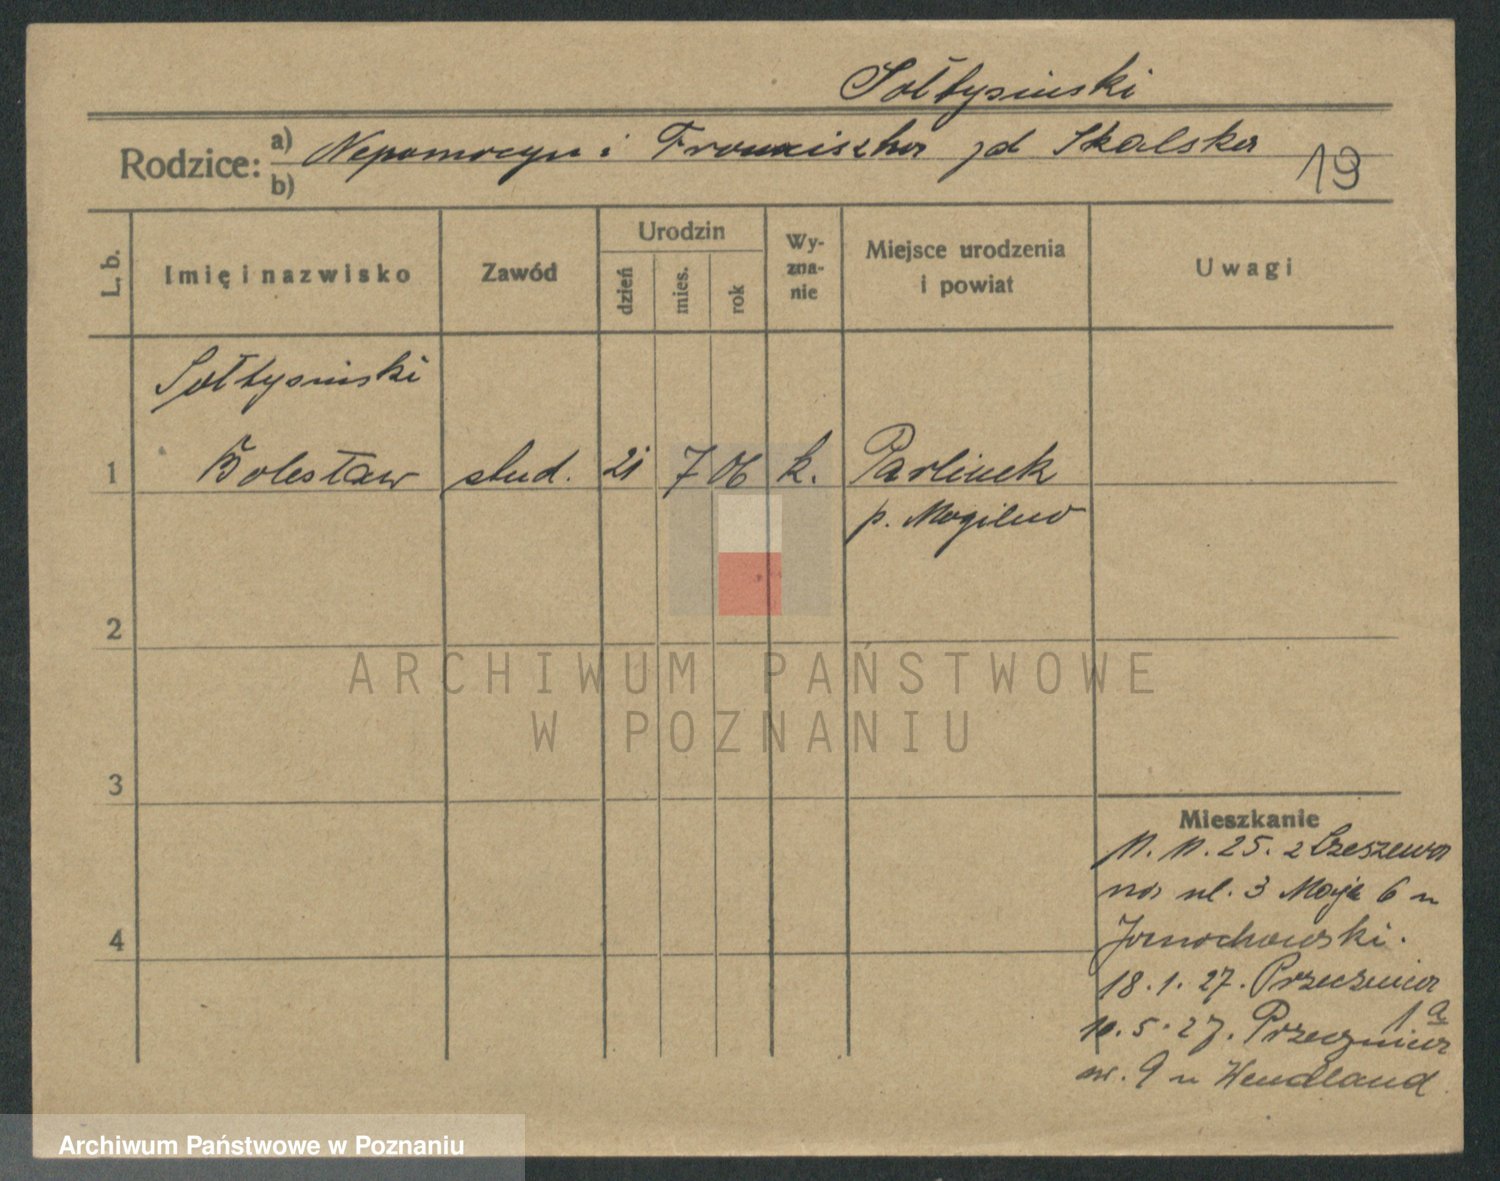 Sołtysiński
Rodzice: a) Nepomocyn i Franciszka zd Skalska
b)
19
L. b.
Imię i nazwisko
Zawód
Urodzin
dzień
mies.
rok
Wy-
zna-
nie
Miejsce urodzenia
i powiat
Uwagi
Sołtysiński
1 Bolesław stud. 21 7 06 k. Parlinek
p. Mogilno
2
3
4
Mieszkanie
11. 11. 25. z
na ul. 3 Maja 6 u
Janochowski.
18. 1. 27. Przecznica
1a
10. 5. 27. Przecznica
nr. 9 u Wendland
ARCHIWUM PAŃSTWOWE
W POZNANIU
Archiwum Państwowe w Poznaniu